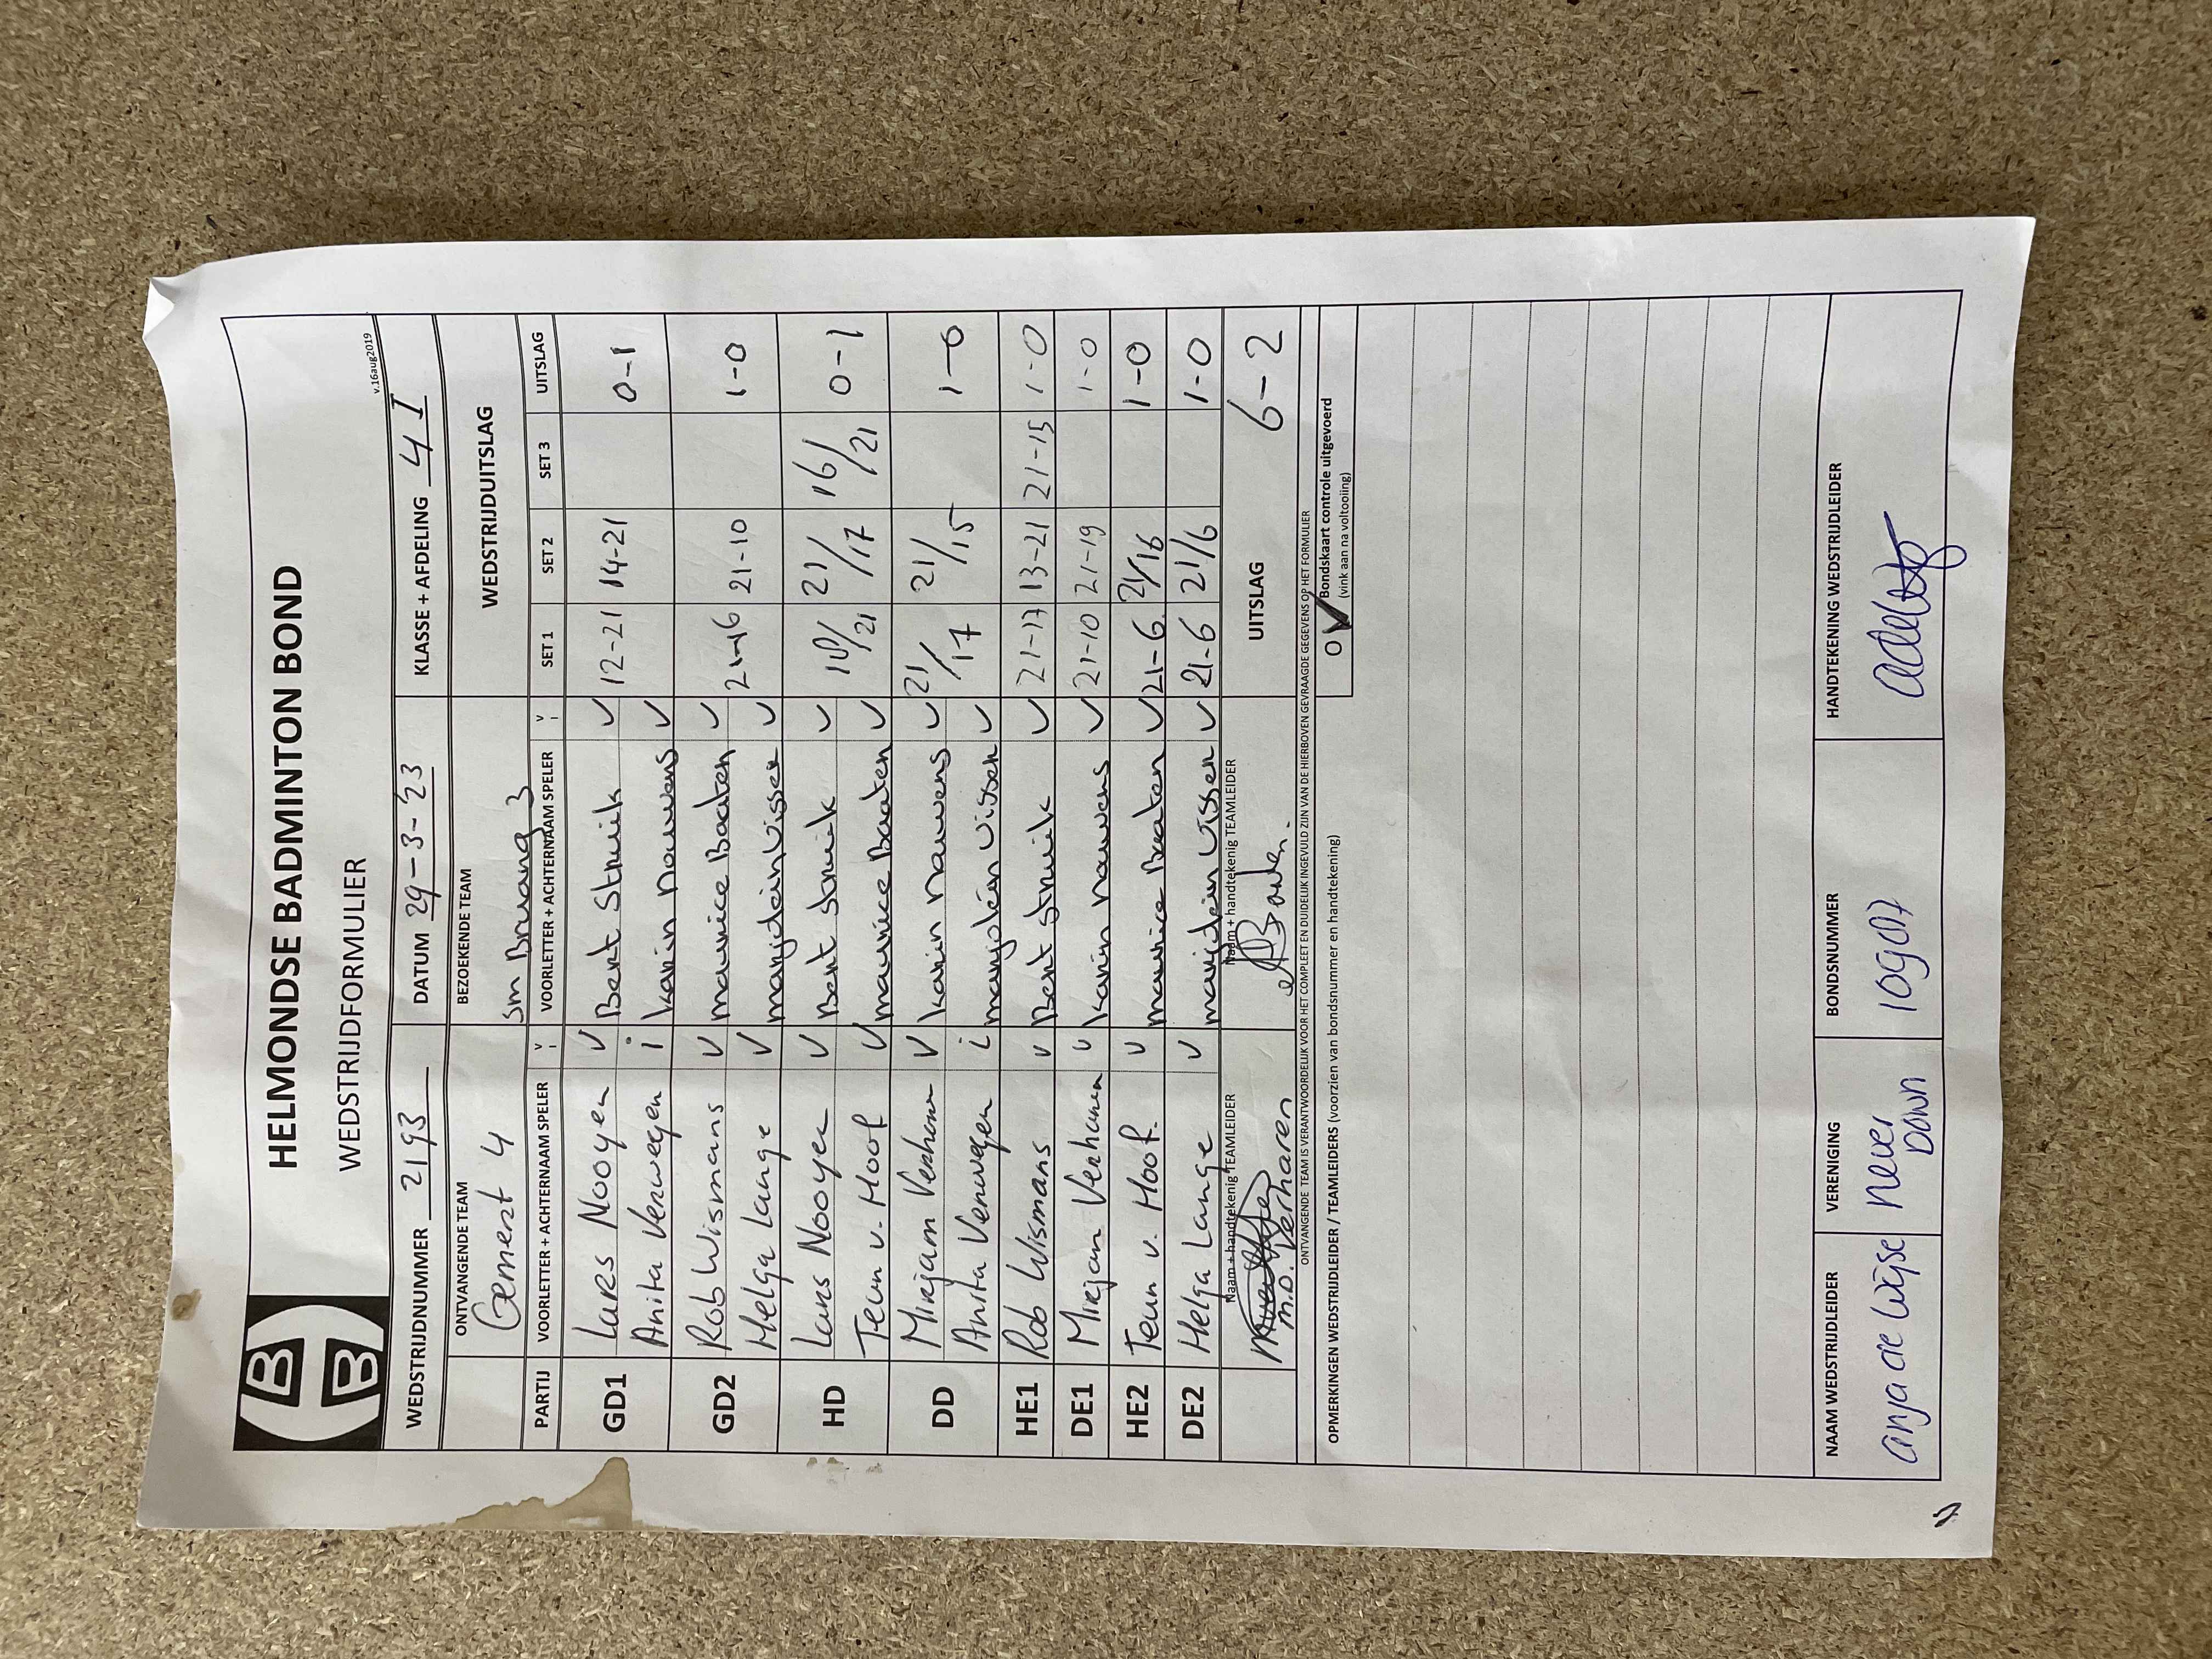 HELMONDSE BADMINTON BOND
WEDSTRIJDFORMULIER
v.16aug2019
WEDSTRIJDNUMMER 2193 DATUM 29-3-'23 KLASSE + AFDELING 4 I
ONTVANGENDE TEAM BEZOEKENDE TEAM WEDSTRIJDUITSLAG
Gemert 4 Sm Bruang 3
PARTIJ VOORLETTER + ACHTERNAAM SPELER V I VOORLETTER + ACHTERNAAM SPELER V I SET 1 SET 2 SET 3 UITSLAG
GD1 Lars Nooyen v Bert Struik v 12-21 14-21 0-1
Anita Verwegen i karin nouwens v
GD2 Rob Wismans v maurice Baaten v 21-16 21-10 1-0
Helga Lange v marjolein Visser v
HD Lars Nooyen v Bert Struik v 10/21 21/17 16/21 0-1
Teun v. Hoof v maurice Baaten v
DD Mirjam Verharen v karin nouwens v 21/17 21/15 1-0
Anita Verwegen i marjolein Visser v
HE1 Rob Wismans v Bert Struik v 21-17 13-21 21-15 1-0
DE1 Mirjam Verharen v karin nouwens v 21-10 21-19 1-0
HE2 Teun v. Hoof v maurice Baaten v 21-6 21/16 1-0
DE2 Helga Lange v marjolein Visser v 21-6 21/6 1-0
Naam + handtekenig TEAMLEIDER Naam + handtekenig TEAMLEIDER UITSLAG 6-2
M.D. Verharen
ONTVANGENDE TEAM IS VERANTWOORDELIJK VOOR HET COMPLEET EN DUIDELIJK INGEVULD ZIJN VAN DE HIERBOVEN GEVRAAGDE GEGEVENS OP HET FORMULIER
OPMERKINGEN WEDSTRIJDLEIDER / TEAMLEIDERS (voorzien van bondsnummer en handtekening) O Bondskaart controle uitgevoerd
(vink aan na voltooiing)
NAAM WEDSTRIJDLEIDER VERENIGING BONDSNUMMER HANDTEKENING WEDSTRIJDLEIDER
anja de Wijse never Down 109017